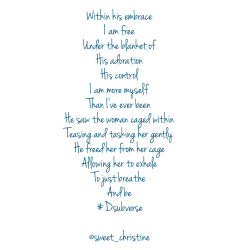 Within his embrace
I am free
Under the blanket of
His adoration
His control
I am more myself
Than I've ever been
He saw the woman caged within
Teasing and tasking her gently
He freed her from her cage
Allowing her to exhale
To just breathe
And be
# Dsubverse
@sweet_christine